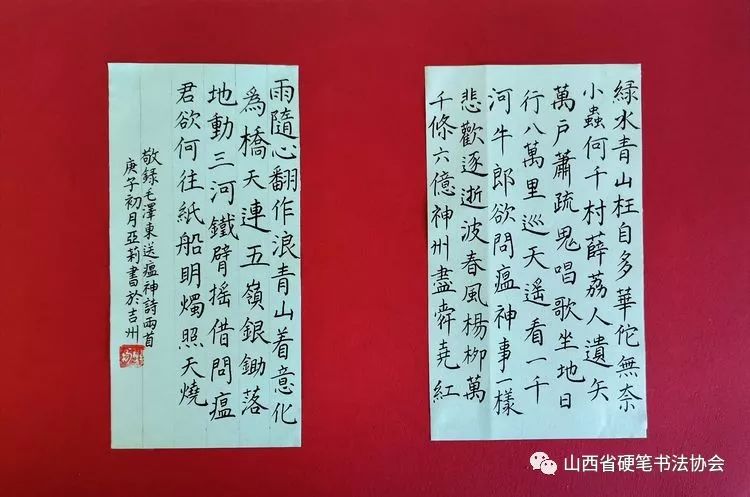 綠水青山枉自多華佗無奈
小蟲何千村薜荔人遺矢
萬戶蕭疏鬼唱歌坐地日
行八萬里巡天遙看一千
河牛郎欲問瘟神事一樣
悲歡逐逝波春風楊柳萬
千條六億神州盡舜堯紅
雨隨心翻作浪青山着意化
爲橋天連五嶺銀鋤落
地動三河鐵臂搖借問瘟
君欲何往紙船明燭照天燒
敬錄毛澤東送瘟神詩兩首
庚子初月亞莉書於吉州
山西省硬笔书法协会